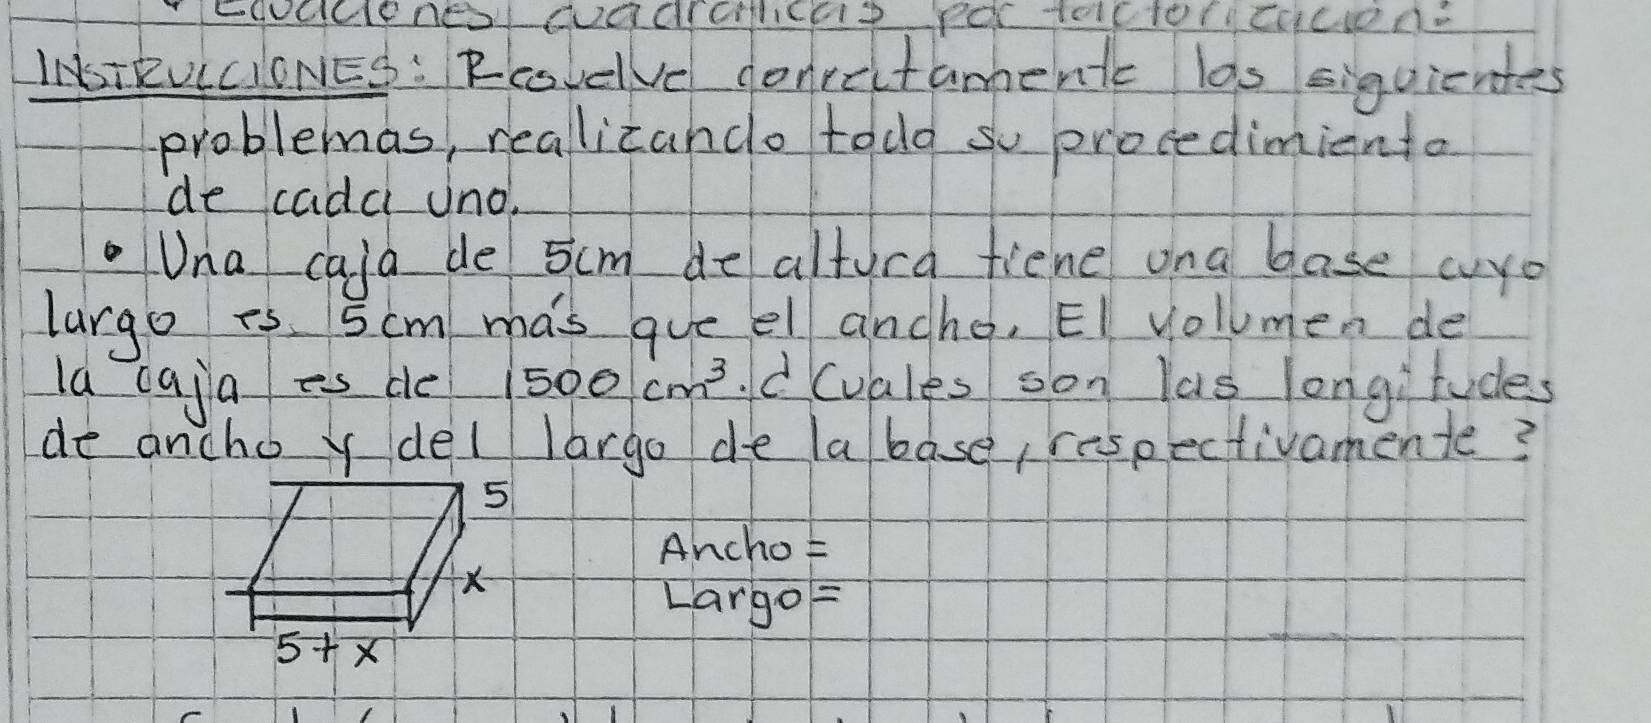 Ecuaciones cuadraticas por factorización:
INSTRUCCIONES: Resuelve correctamente los siguientes
problemas, realizando todo su procedimiento
de cada uno.
• Una caja de 5cm de altura tiene una base cuyo
largo es 5cm más que el ancho. El volumen de
la caja es de 1500 cm³. ¿Cuales son las longitudes
de ancho y del largo de la base, respectivamente?
5
Ancho =
x
Largo =
5+x